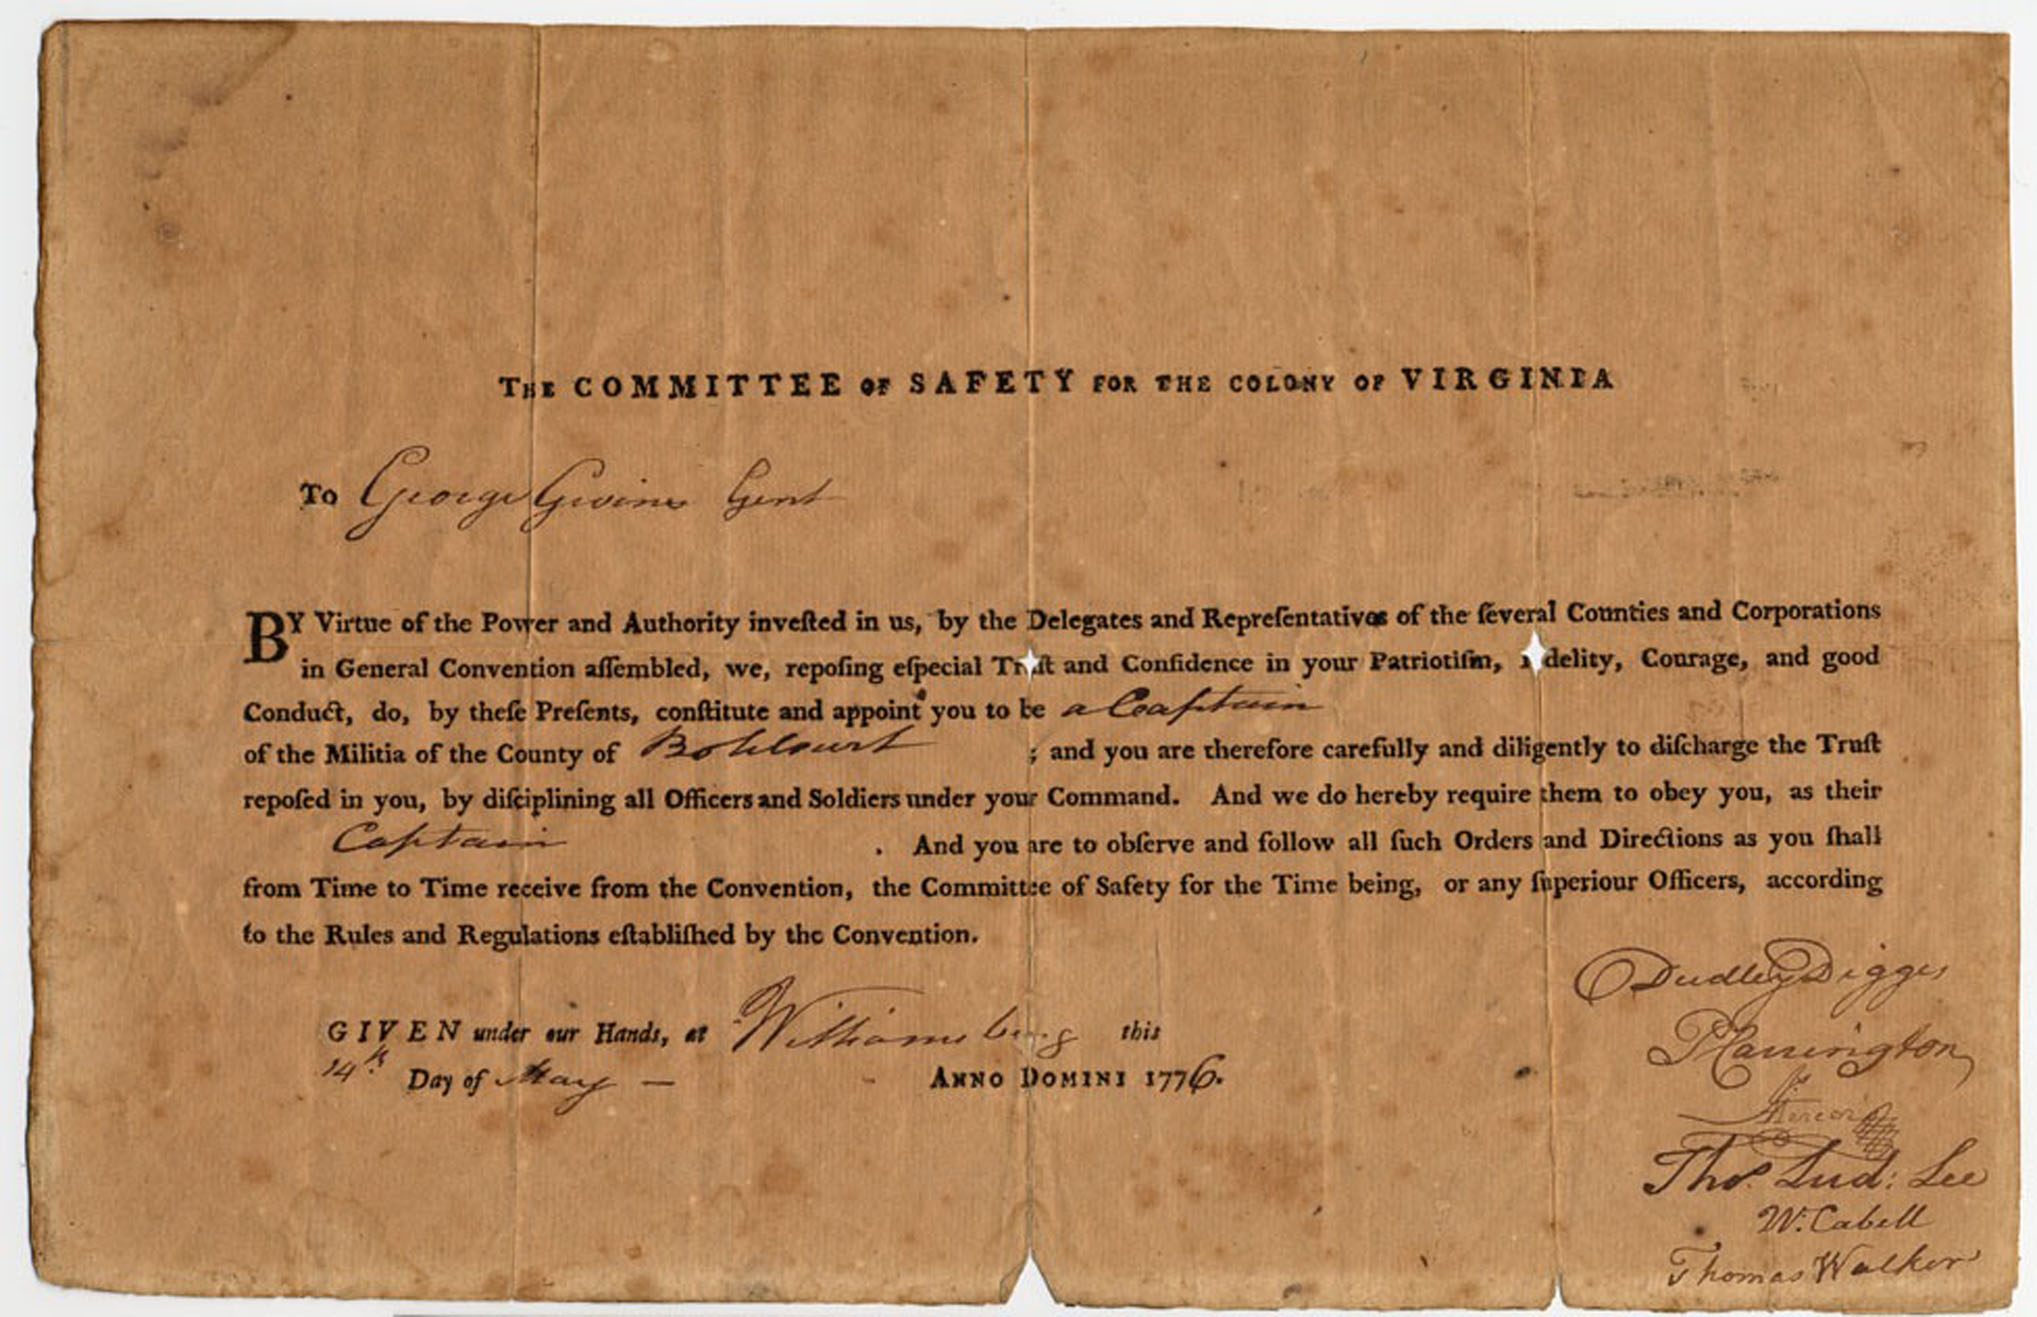 THE COMMITTEE OF SAFETY FOR THE COLONY OF VIRGINIA
To George Givins Gent
BY Virtue of the Power and Authority inveſted in us, by the Delegates and Repreſentatives of the ſeveral Counties and Corporations
in General Convention aſſembled, we, repoſing eſpecial Truſt and Confidence in your Patriotiſm, Fidelity, Courage, and good
Conduct, do, by theſe Preſents, conſtitute and appoint you to be a Captain
of the Militia of the County of Botetourt ; and you are therefore carefully and diligently to diſcharge the Truſt
repoſed in you, by diſciplining all Officers and Soldiers under your Command. And we do hereby require them to obey you, as their
Captain . And you are to obſerve and follow all ſuch Orders and Directions as you ſhall
from Time to Time receive from the Convention, the Committee of Safety for the Time being, or any ſuperiour Officers, according
to the Rules and Regulations eſtabliſhed by the Convention.
GIVEN under our Hands, at Williamsburg this
14th Day of May — ANNO DOMINI 1776.
Dudley Digges
P Carrington
J. Mercer
Thos. Lud: Lee
W. Cabell
Thomas Walker